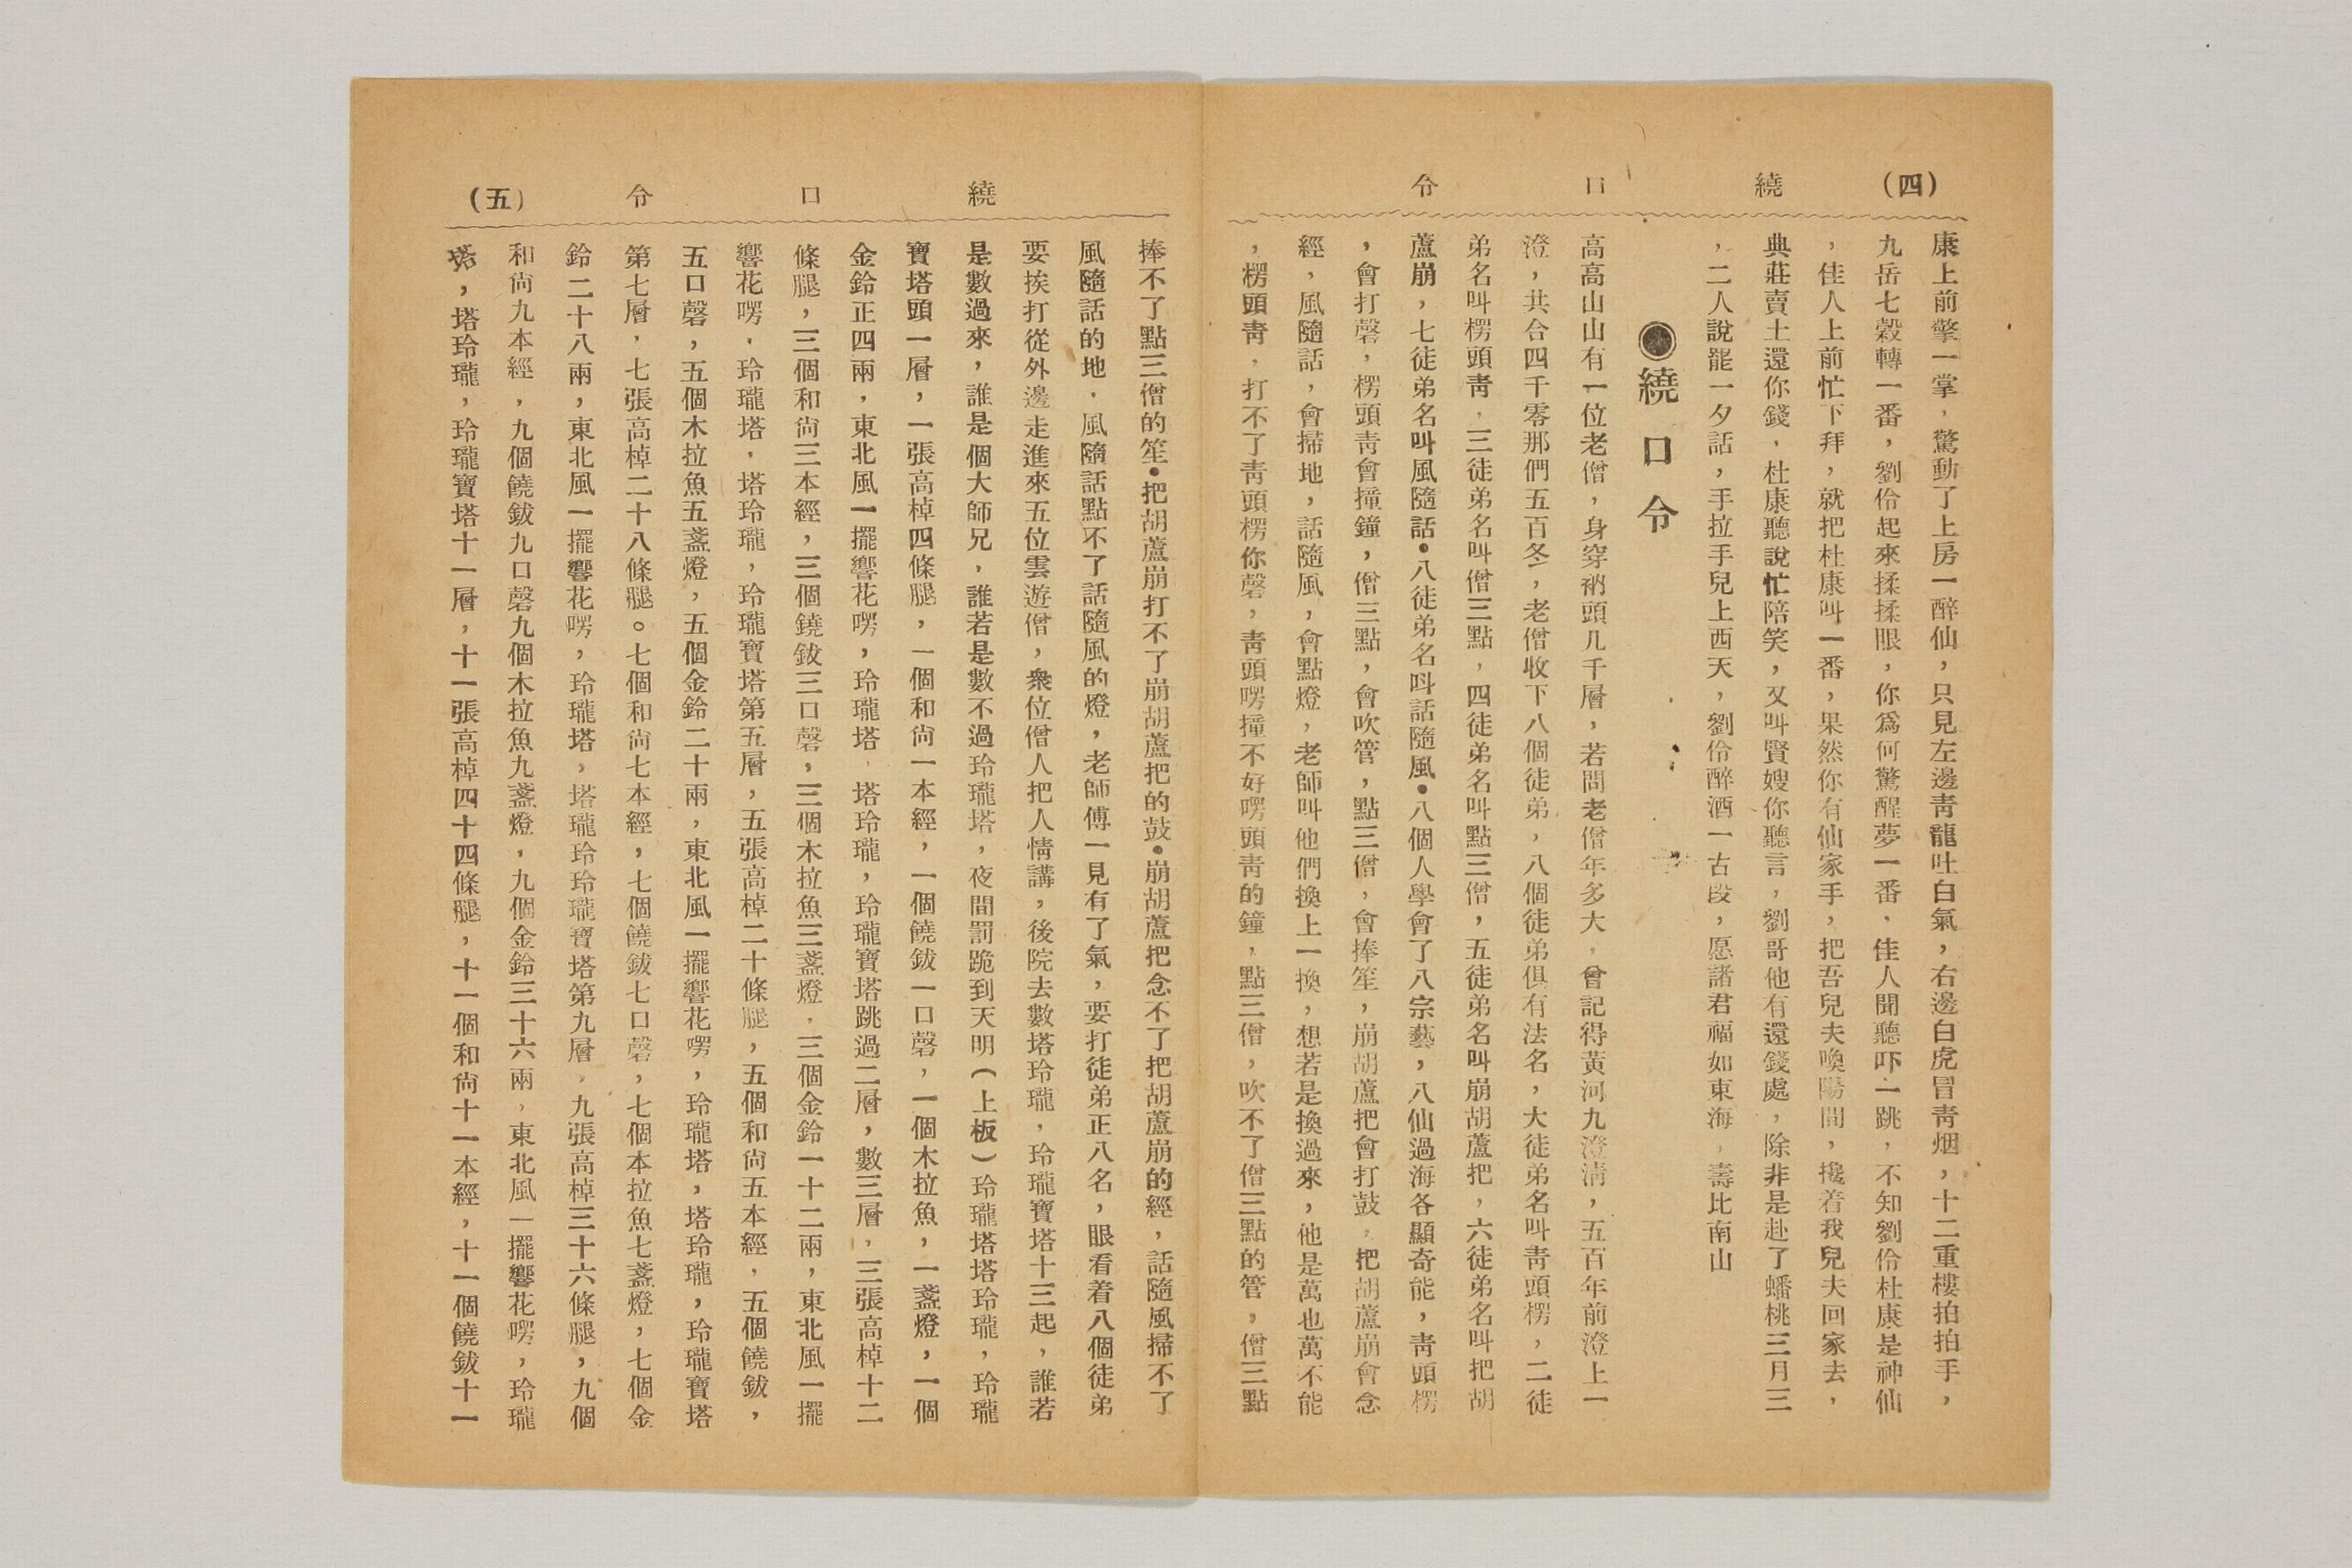 (四) 繞口令
康上前擎一掌，驚動了上房一醉仙，只見左邊靑龍吐白氣，右邊白虎冒靑烟，十二重樓拍拍手，
九岳七穀轉一番，劉伶起來揉揉眼，你爲何驚醒夢一番．佳人聞聽吓一跳，不知劉伶杜康是神仙
，佳人上前忙下拜，就把杜康叫一番，果然你有仙家手，把吾兒夫喚陽間，攙着我兒夫回家去，
典莊賣土還你錢．杜康聽說忙陪笑，又叫賢嫂你聽言，劉哥他有還錢處，除非是赴了蟠桃三月三
，二人說罷一夕話，手拉手兒上西天，劉伶醉酒一古段，愿諸君福如東海，壽比南山
◉繞口令
高高山山有一位老僧，身穿衲頭几千層，若問老僧年多大，曾記得黃河九澄淸，五百年前澄上一
澄，共合四千零那們五百冬，老僧收下八個徒弟，八個徒弟俱有法名，大徒弟名叫靑頭楞，二徒
弟名叫楞頭靑，三徒弟名叫僧三點，四徒弟名叫點三僧，五徒弟名叫崩胡蘆把，六徒弟名叫把胡
蘆崩，七徒弟名叫風隨話•八徒弟名呌話隨風•八個人學會了八宗藝，八仙過海各顯奇能，靑頭楞
，會打磬，楞頭靑會撞鐘，僧三點，會吹管，點三僧，會捧笙，崩胡蘆把會打鼓，把胡蘆崩會念
經，風隨話，會掃地，話隨風，會點燈，老師叫他們換上一換，想若是換過來，他是萬也萬不能
，楞頭靑，打不了靑頭楞你磬，靑頭愣撞不好愣頭靑的鐘，點三僧，吹不了僧三點的管，僧三點
繞口令 (五)
捧不了點三僧的笙•把胡蘆崩打不了崩胡蘆把的鼓•崩胡蘆把念不了把胡蘆崩的經，話隨風掃不了
風隨話的地．風隨話點不了話隨風的燈，老師傅一見有了氣，要打徒弟正八名，眼看着八個徒弟
要挨打從外邊走進來五位雲遊僧，衆位僧人把人情講，後院去數塔玲瓏，玲瓏寶塔十三起，誰若
是數過來，誰是個大師兄，誰若是數不過玲瓏塔，夜間罰跪到天明（上板）玲瓏塔塔玲瓏，玲瓏
寶塔頭一層，一張高棹四條腿，一個和尙一本經，一個饒鈸一口磬，一個木拉魚，一盞燈，一個
金鈴正四兩，東北風一擺響花愣，玲瓏塔，塔玲瓏，玲瓏寶塔跳過二層，數三層，三張高棹十二
條腿，三個和尙三本經，三個鐃鈸三口磬，三個木拉魚三盞燈，三個金鈴一十二兩，東北風一擺
響花愣．玲瓏塔．塔玲瓏，玲瓏寶塔第五層，五張高棹二十條腿，五個和尙五本經，五個饒鈸，
五口磬，五個木拉魚五盞燈，五個金鈴二十兩，東北風一擺響花愣，玲瓏塔，塔玲瓏，玲瓏寶塔
第七層．七張高棹二十八條腿。七個和尙七本經，七個饒鈸七口磬，七個本拉魚七盞燈，七個金
鈴二十八兩，東北風一擺響花愣，玲瓏塔，塔瓏玲玲瓏寶塔第九層，九張高棹三十六條腿，九個
和尙九本經，九個饒鈸九口磬九個木拉魚九盞燈，九個金鈴三十六兩，東北風一擺響花愣，玲瓏
塔，塔玲瓏，玲瓏寶塔十一層，十一張高棹四十四條腿，十一個和尙十一本經，十一個饒鈸十一